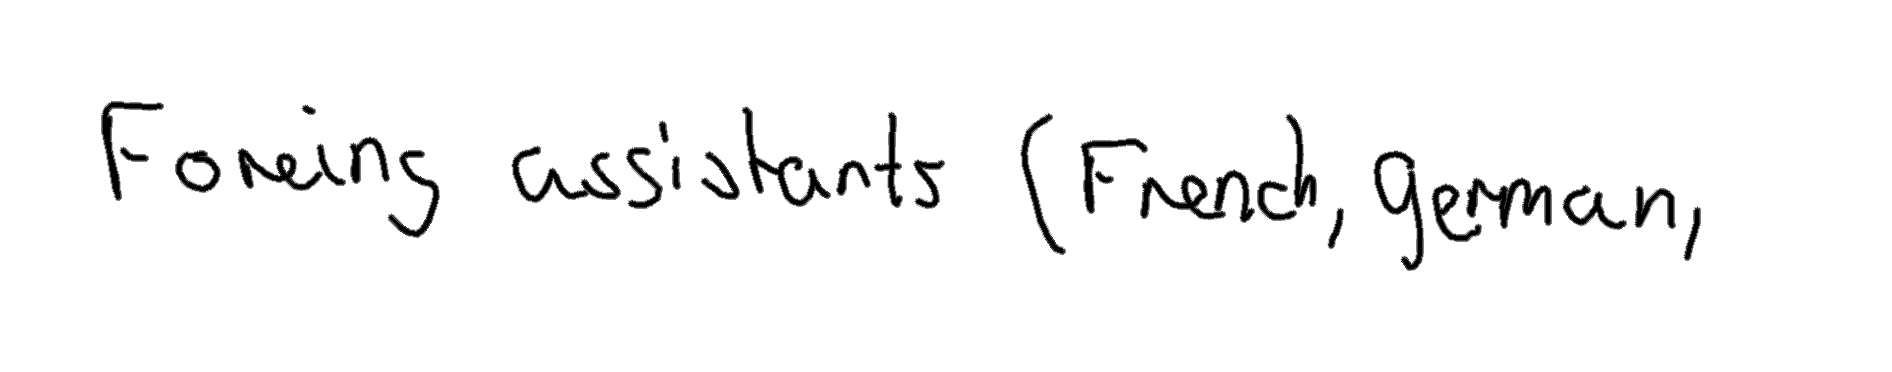 Foreing assistants (French, german,